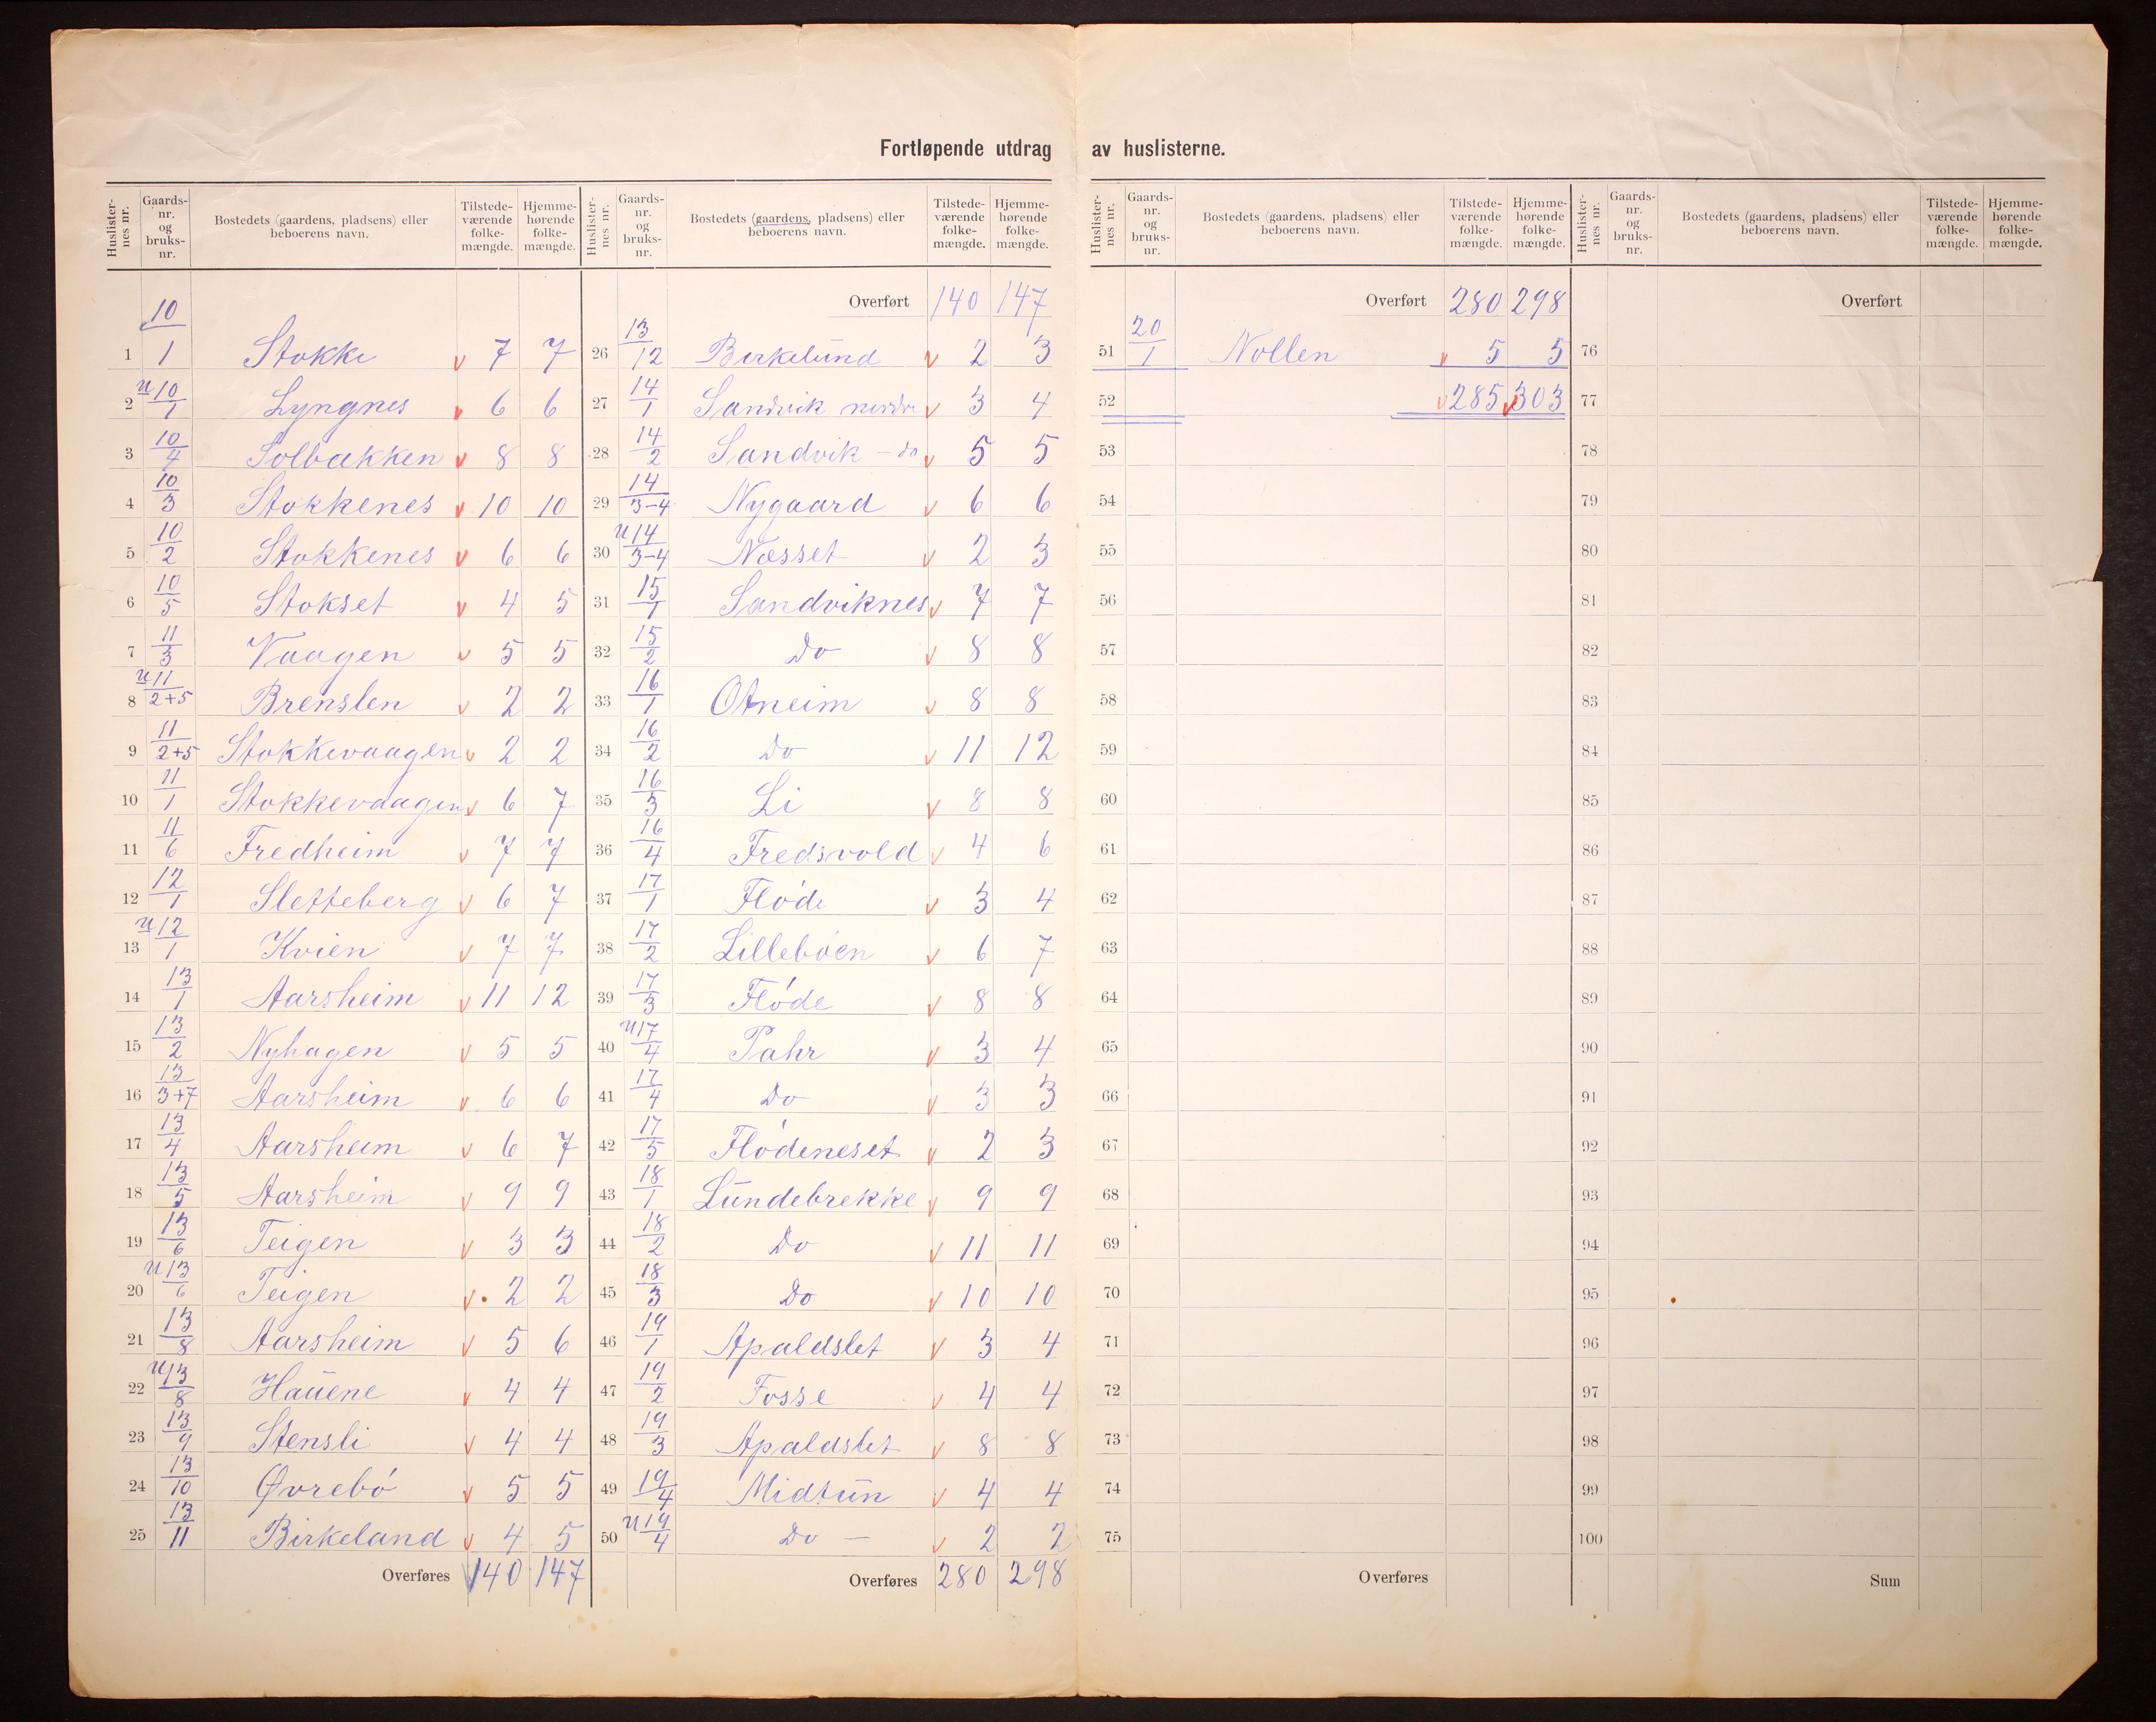 Fortløpende utdrag av huslisterne.
Huslisternes nr. | Gaards-nr. og bruks-nr. | Bostedets (gaardens, pladsens) eller beboerens navn. | Tilstedeværende folkemængde. | Hjemmehørende folkemængde.
1 10/1 Stokke v 7 7
2 u 10/1 Lyngnes v 6 6
3 10/4 Solbakken v 8 8
4 10/3 Stokkenes v 10 10
5 10/2 Stokkenes v 6 6
6 10/5 Stokset v 4 5
7 11/3 Vaagen v 5 5
8 u 11/2+5 Brenslen v 2 2
9 11/2+5 Stokkevaagen v 2 2
10 11/1 Stokkevaagen v 6 7
11 11/6 Fredheim v 7 7
12 12/1 Sletteberg v 6 7
13 u 12/1 Kvien v 7 7
14 13/1 Aarsheim v 11 12
15 13/2 Nyhagen v 5 5
16 13/3+7 Aarsheim v 6 6
17 13/4 Aarsheim v 6 7
18 13/5 Aarsheim v 9 9
19 13/6 Teigen v 3 3
20 u 13/6 Teigen v 2 2
21 13/8 Aarsheim v 5 6
22 u 13/8 Hauene v 4 4
23 13/9 Stensli v 4 4
24 13/10 Øvrebó v 5 5
25 13/11 Birkeland v 4 5
Overføres v 140 147
Huslisternes nr. | Gaards-nr. og bruks-nr. | Bostedets (gaardens, pladsens) eller beboerens navn. | Tilstedeværende folkemængde. | Hjemmehørende folkemængde.
Overført 140 147
26 13/12 Birkelund v 2 3
27 14/1 Sandvik nordre v 3 4
28 14/2 Sandvik – do v 5 5
29 14/3-4 Nygaard v 6 6
30 u 14/3-4 Nesset v 2 3
31 15/1 Sandviknes v 7 7
32 15/2 Do v 8 8
33 16/1 Otneim v 8 8
34 16/2 Do v 11 12
35 16/3 Li v 8 8
36 16/4 Fredsvold v 4 6
37 17/1 Flóde v 3 4
38 17/2 Lillebóen v 6 7
39 17/3 Flóde v 8 8
40 u 17/4 Pahr v 3 4
41 17/4 Do v 3 3
42 17/5 Flódeneset v 2 3
43 18/1 Lundebrekke v 9 9
44 18/2 Do v 11 11
45 18/3 Do v 10 10
46 19/1 Apaldslet v 3 4
47 19/2 Fosse v 4 4
48 19/3 Apaldslet v 8 8
49 19/4 Midtun v 4 4
50 u 19/4 Do – v 2 2
Overføres 280 298
Huslisternes nr. | Gaards-nr. og bruks-nr. | Bostedets (gaardens, pladsens) eller beboerens navn. | Tilstedeværende folkemængde. | Hjemmehørende folkemængde.
Overført 280 298
51 20/1 Nollen v 5 5
52 v 285 v 303
53
54
55
56
57
58
59
60
61
62
63
64
65
66
67
68
69
70
71
72
73
74
75
Overføres
Huslisternes nr. | Gaards-nr. og bruks-nr. | Bostedets (gaardens, pladsens) eller beboerens navn. | Tilstedeværende folkemængde. | Hjemmehørende folkemængde.
Overført
76
77
78
79
80
81
82
83
84
85
86
87
88
89
90
91
92
93
94
95
96
97
98
99
100
Sum